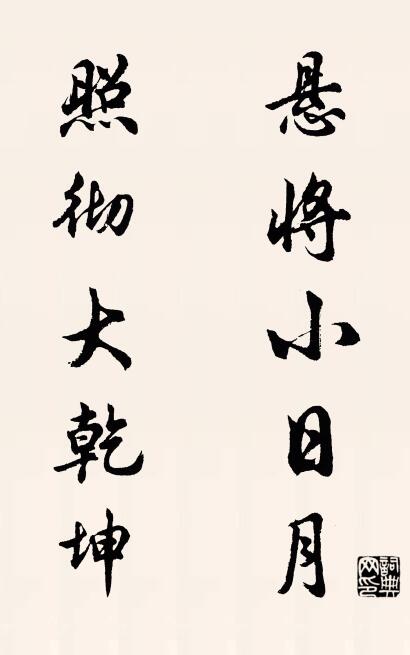 悬将小日月
照彻大乾坤
詞典网印